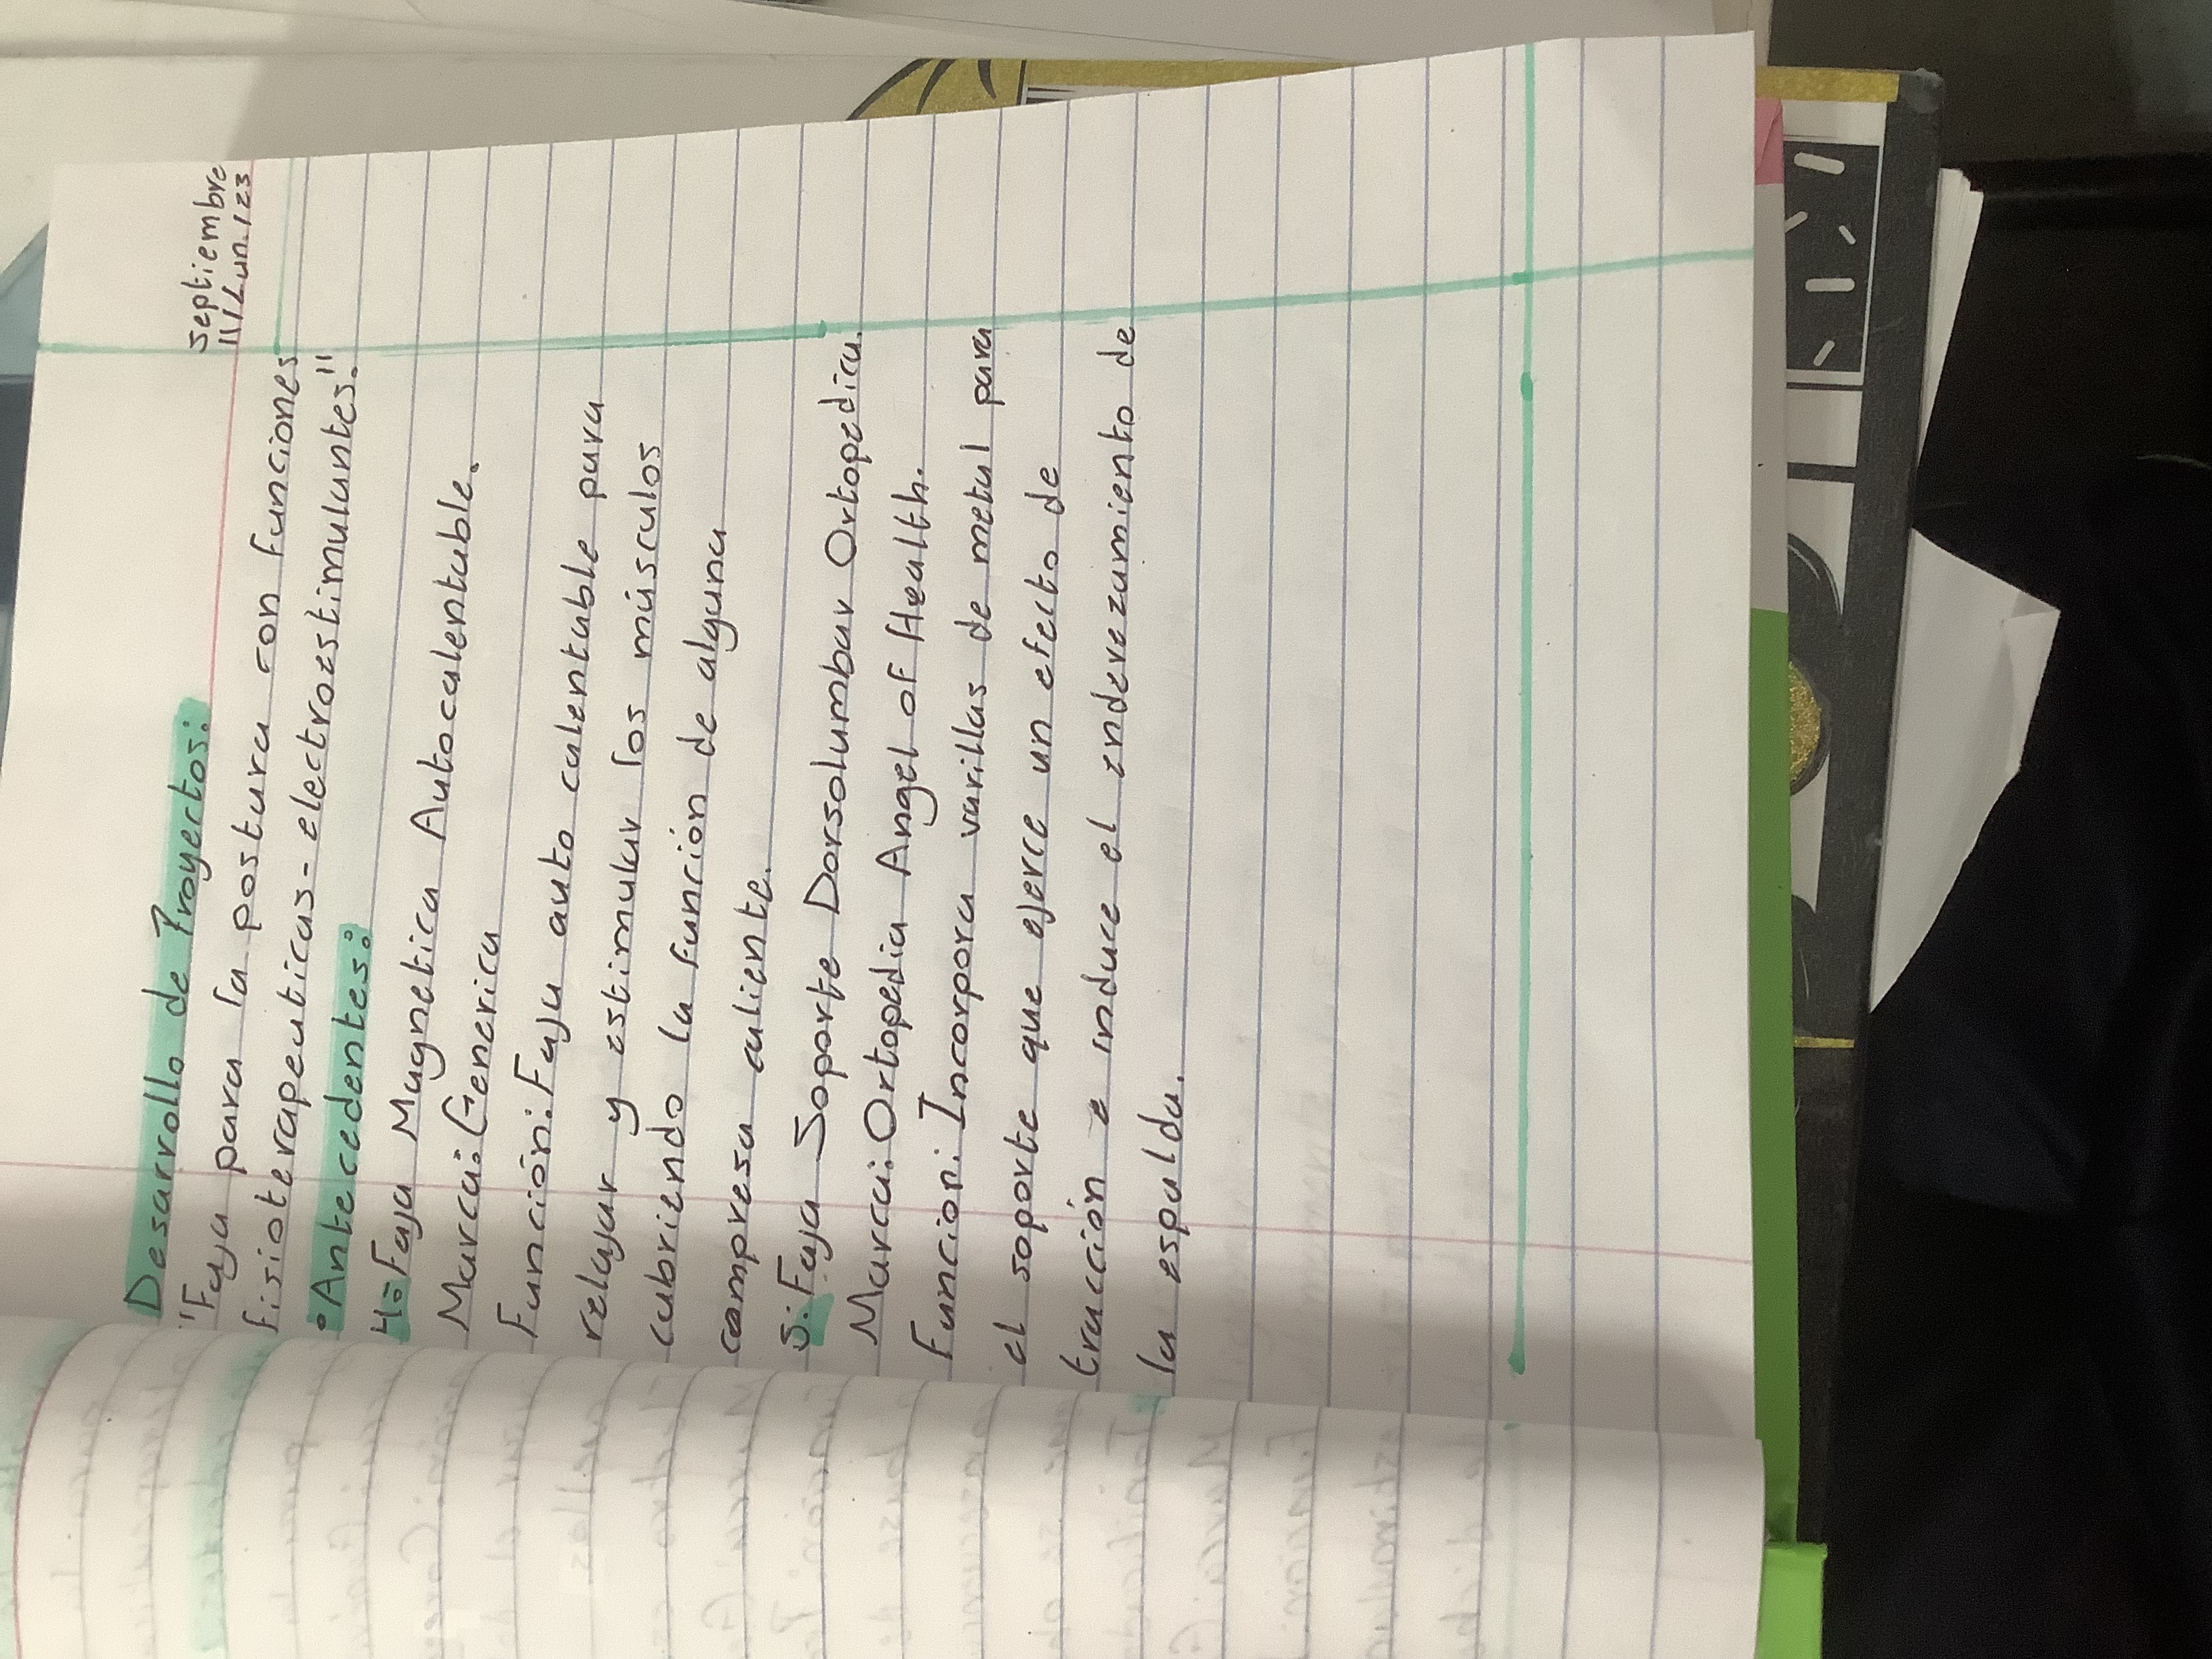 septiembre
11/Lun./23
Desarrollo de Proyectos:
"Faja para la postura con funciones
fisioterapeuticas-electroestimulantes."
•Antecedentes:
4:Faja Magnetica Autocalentable.
Marca: Generica
Función: Faja auto calentable para
relajar y estimular los músculos
cubriendo la función de alguna
compresa caliente.
5: Faja Soporte Dorsolumbar Ortopedica.
Marca: Ortopedia Angel of Health.
Funcion: Incorpora varillas de metal para
el soporte que ejerce un efecto de
tracción e induce el enderezamiento de
la espalda.